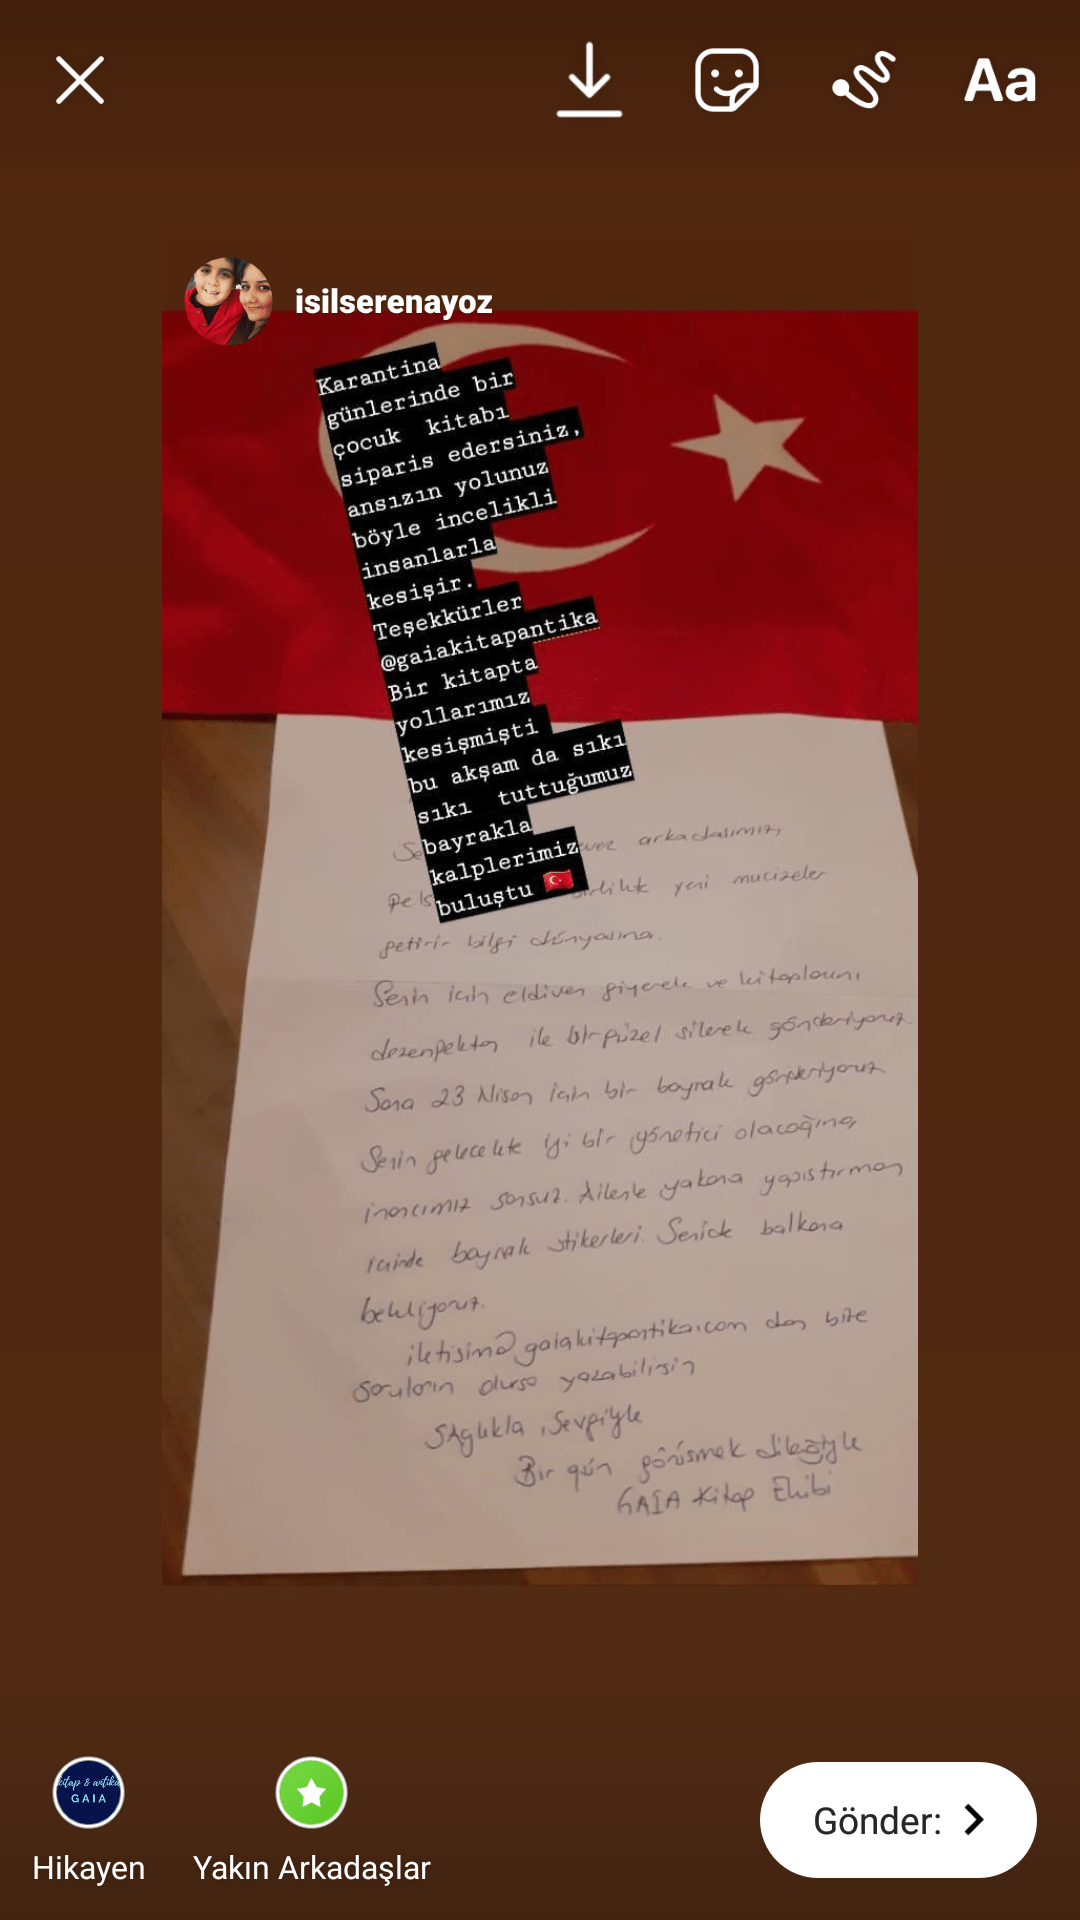 Aa
isilserenayoz
Karantina
günlerinde bir
çocuk kitabı
siparis edersiniz,
ansızın yolunuz
böyle incelikli
insanlarla
kesişir.
Teşekkürler
@gaiakitapantika
Bir kitapta
yollarımız
kesişmişti
bu akşam da sıkı
sıkı tuttuğumuz
bayrakla
kalplerimiz
buluştu
arkadaşımız,
yeni mucizeler
getirir bilgi dünyasına.
Senin için eldiven giyerek ve kitaplarını
dezenfektan ile bir güzel silerek gönderiyoruz.
Sana 23 Nisan için bir bayrak gönderiyoruz
Senin gelecekte iyi bir yönetici olacağına
inancımız sonsuz. Ailenle yakana yapıştırman
içinde bayrak stikerleri. Senide balkona
bekliyoruz.
iletisim@gaiakitapantika.com dan bize
soruların olursa yazabilirsin
Sağlıkla, Sevgiyle
Bir gün görüşmek dileğiyle
GAIA Kitap Ekibi
kitap & antika
GAIA
Hikayen
Yakın Arkadaşlar
Gönder: